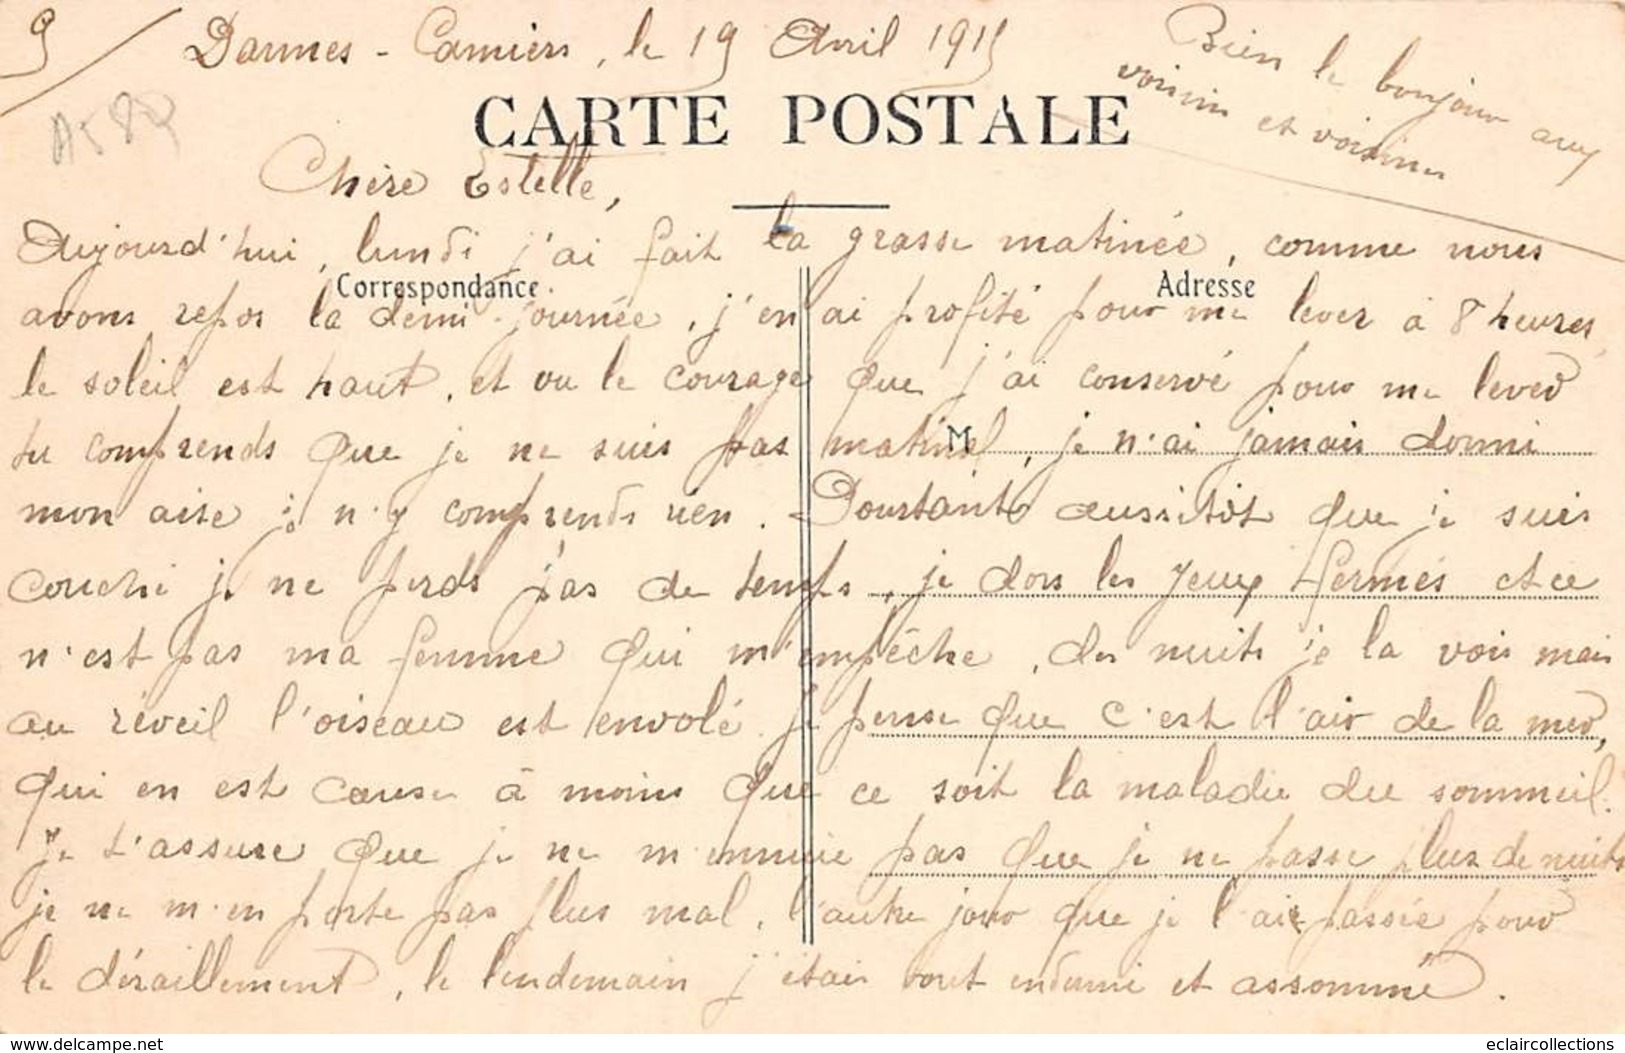 9/
Dannes - Camiers, le 19 Avril 1915
Bien le bonjour aux
voisins et voisines
CARTE POSTALE
Chère Estelle,
Aujourd'hui, lundi j'ai fait la grasse matinée, comme nous
Correspondance
Adresse
avons repos la demi-journée, j'en ai profité pour me lever à 8 heures,
le soleil est haut, et vu le courage que j'ai conservé pour me lever
tu comprends que je ne suis pas matinal, je n'ai jamais dormi
M
mon aise je n'y comprends rien. Pourtant aussitôt que je suis
couché je ne perds pas de temps, je dors les yeux fermés et ce
n'est pas ma femme qui m'empêche, des nuits je la vois mais
au réveil l'oiseau est envolé je pense que c'est l'air de la mer,
qui en est cause à moins que ce soit la maladie du sommeil.
Je t'assure que je ne m'ennuie pas que je ne passe plus de nuits
je ne m'en porte pas plus mal, l'autre jour que je l'ai passée pour
le déraillement, le lendemain j'étais tout endormi et assommé.
www.delcampe.net
eclaircollections